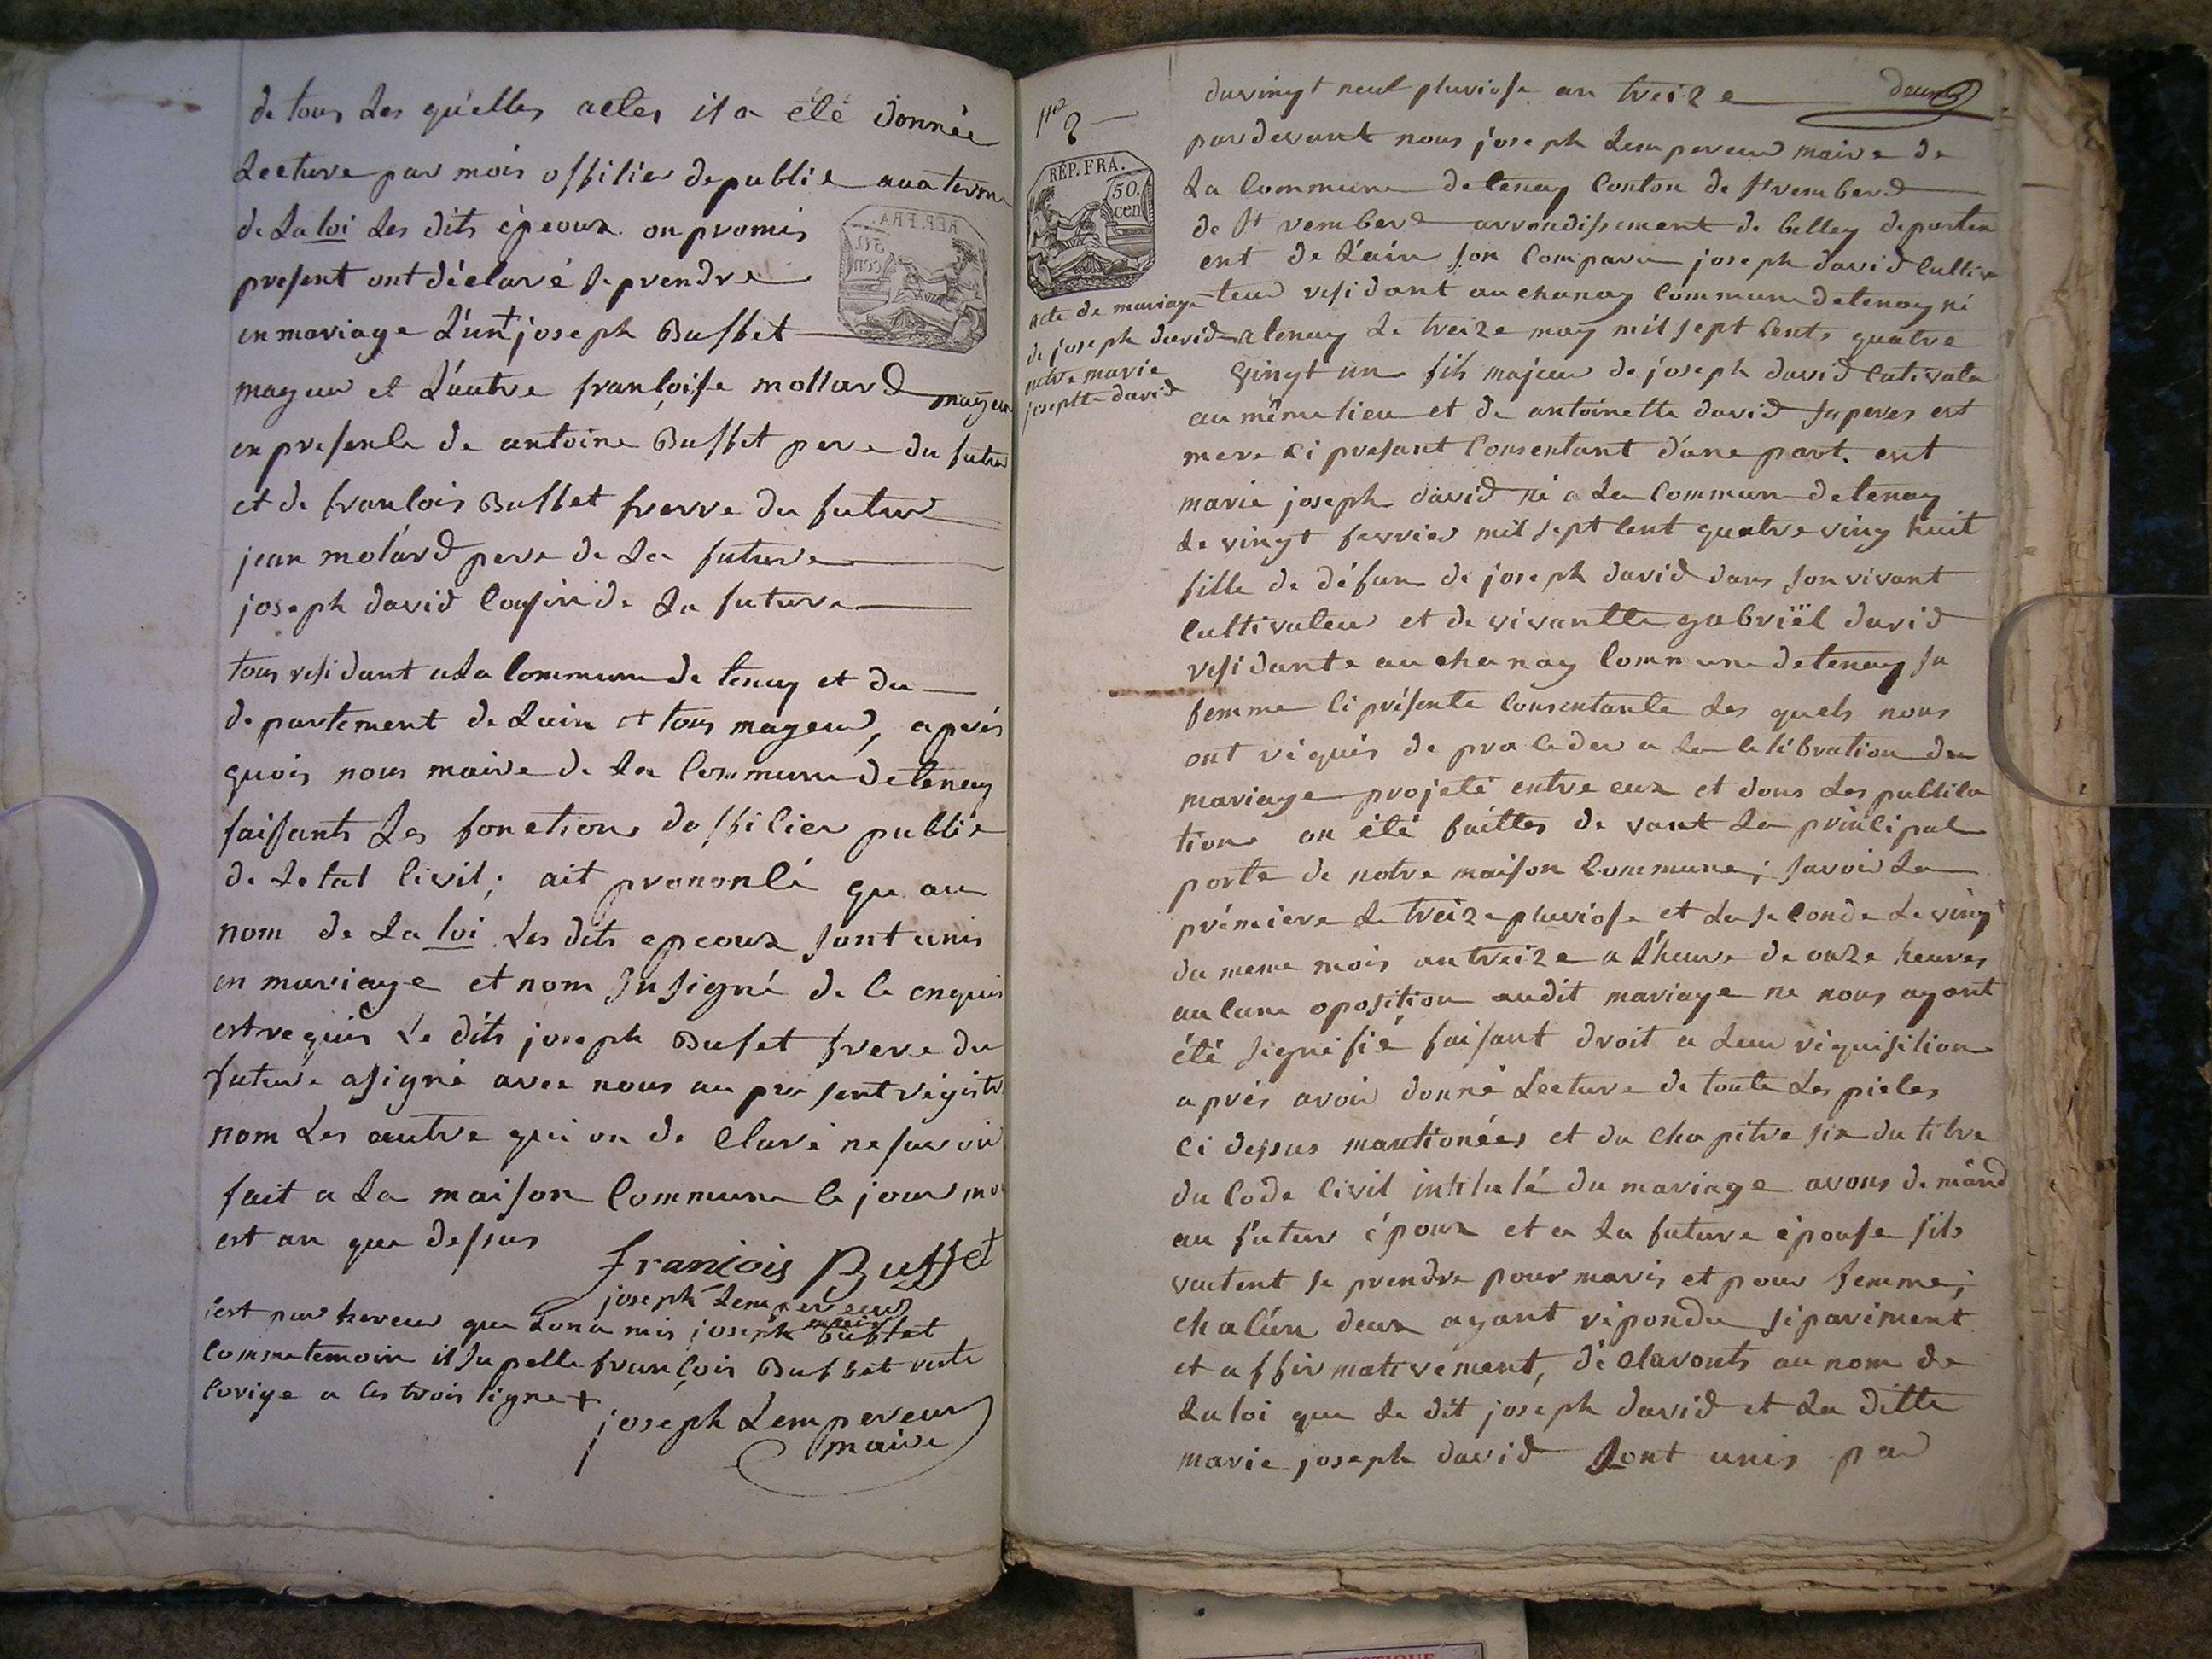 de tous les quelles actes il a été donnée
Lecture par mois offisier de publie aux terme
de La loi Les dits épeoux on promis
present ont déclaré se prendre
en mariage L'un + joseph Buffet
mageur et L'autre françoise mollard mageure
en presence de antoine Buffet pere du futur
et de francois Buffet frerre du futur
jean molard pere de La future
joseph david cousin de La future
tous residant a La commune de tenay et du
departement de Lain et tous mageur, aprés
quois nous maire de La commune de tenay
faisants Les fonctions dofficier publie
de Letat civil; ait prononcé qu au
nom de La loi Les dits epeoux sont unis
en mariage et nom susigné de ce enquis
est requis Le dits joseph Bufet frere du
future a signé avec nous au present régistre
nom Les autre qui on de claré ne savoir
fait a La maison commune le jour mois
est an que dessus
françois Buffet
joseph Lempereur
maire
cest par herreur que Lon a mis joseph Buffet
comme temoin il sapelle françois Buffet reste
corige a ces trois ligne +
joseph Lempereur
maire
RÉP. FRA.
50.
cen
du vingt neuf pluviose an treize
deux
par devant nous joseph Lempereur maire de
La commune de tenay conton de St remberd
de St remberd arrondissement de belley departem
ent de L'ain son comparu joseph david cultiva
teur residant au chanay commune de tenay né
a tenay Le treize may mil sept cents quatre
vingt un fils majeur de joseph david cutivateur
au même lieu et de antoinette david ses peres est
mere ci presant consentant d'une part. est
marie joseph david né a La commune de tenay
Le vingt fevrier mil sept cent quatre ving huit
fille de défun de joseph david dans son vivant
cultivateur et de vivantte gabriël david
residante au chanay commune de tenay sa
femme ci présente consentante Les quels nous
ont réquis de proceder a La célébration du
mariage projeté entre eux et dons Les publica
tions on été faittes de vant La principal
porte de notre maison commune; savoir La
prémiere Le treize pluviose et La seconde Le ving
du meme mois an treize a L'heure de onze heures
aucune oposition audit mariage ne nous ayant
été signifié faisant droit a Leur réquisition
aprés avoir donné Lecture de toute Les pieces
ci dessus mantionées et du chapitre six du titre
du code civil intitulé du mariage avons demand
au futur époux et a La future épouse s'ils
veulent se prendre pour maris et pour femme;
chacun deux ayant répondu séparément
et affirmativement, déclaronts au nom de
La loi que Le dit joseph david et La ditte
marie joseph david sont unis par
n°
2
RÉP. FRA.
50.
cen
acte de mariage
de joseph david
entre marie
josephte david